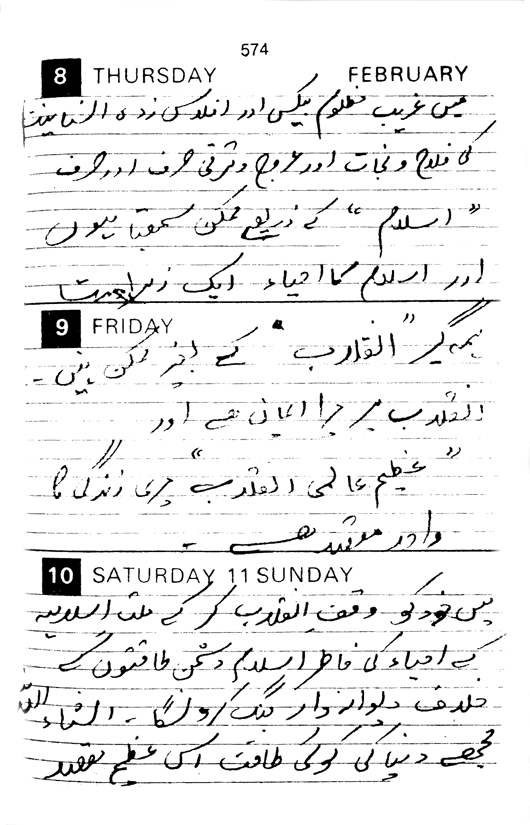 574
8 THURSDAY FEBRUARY
میں غریب مظلوم بیکس اور افلاس زدہ انسانیت
کی فلاح و نجات اور عروج و ترقی صرف اور صرف
"اسلام" کے ذریعے ممکن سمجھتا ہوں
اور اسلام کا احیاء ایک زبردست
9 FRIDAY
ہمہ گیر "انقلاب" کے بغیر ممکن نہیں۔
انقلاب میرا ایمان ہے اور
"عظیم عالمی انقلاب" میری زندگی کا
واحد مقصد ہے۔
10 SATURDAY 11 SUNDAY
میں خود کو وقف انقلاب کر کے ملت اسلامیہ
کے احیاء کی خاطر اسلام دشمن طاقتوں کے
خلاف دیوانہ وار جنگ کرونگا۔ انشاء اللہ
مجھے دنیا کی کوئی طاقت اس عظیم مقصد